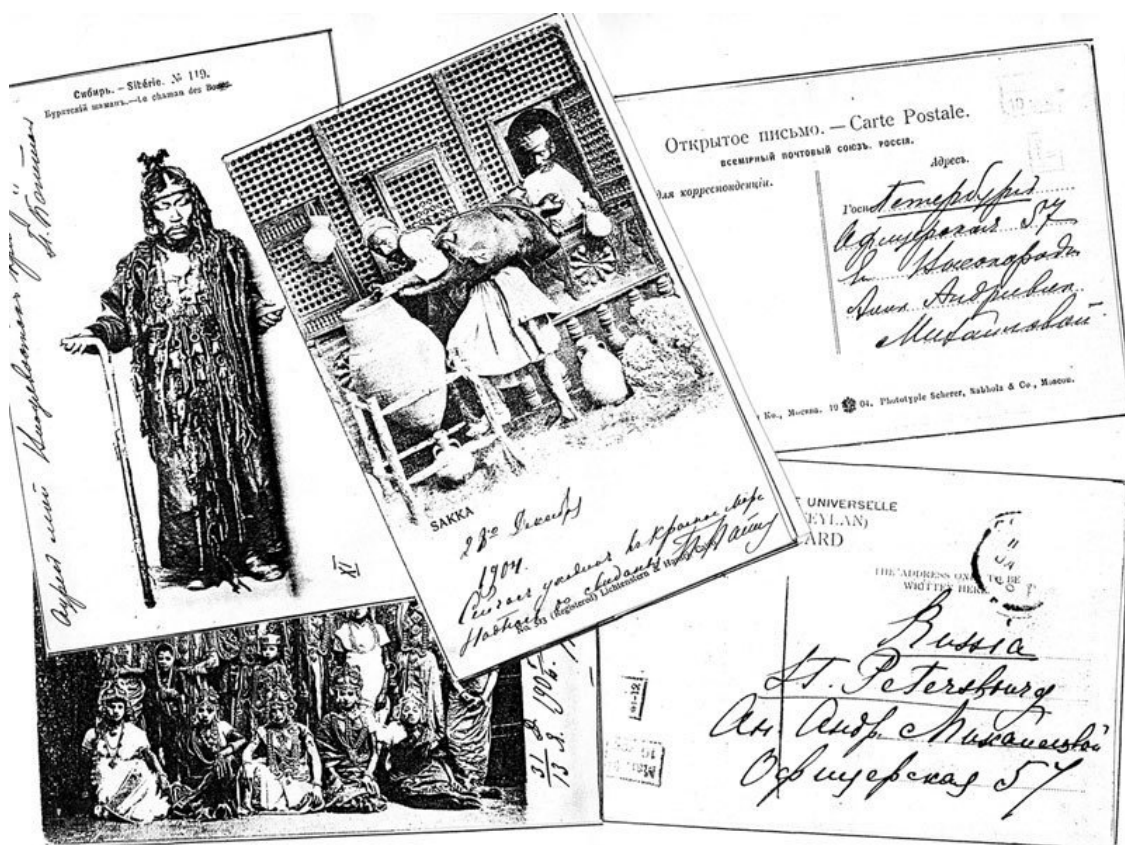 Сибирь. – Sibérie. № 119.
Бурятскій шаманъ. – Le chaman des
SAKKA
23го Декабря
1904.
Сейчас уходим въ Красное море
до свиданья
No. 393 (Registered) Lichtenstern &
Открытое письмо. — Carte Postale.
ВСЕМІРНЫЙ ПОЧТОВЫЙ СОЮЗЪ. РОССІЯ.
для корреспонденціи.
Адресъ.
Петербургъ
Офицерская 57
Анне Андреевне
Михайловой
Ко., Москва. 19 04. Phototypie Scherer, Nabholz & Co., Moscou.
XI
31 D. 190
13 J.
UNIVERSELLE
EYLAN)
ARD
THE ADDRESS ONLY TO BE
WRITTEN HERE.
Russia
St. Petersbourg
Ан Андр. Михайловой
Офицерская 57